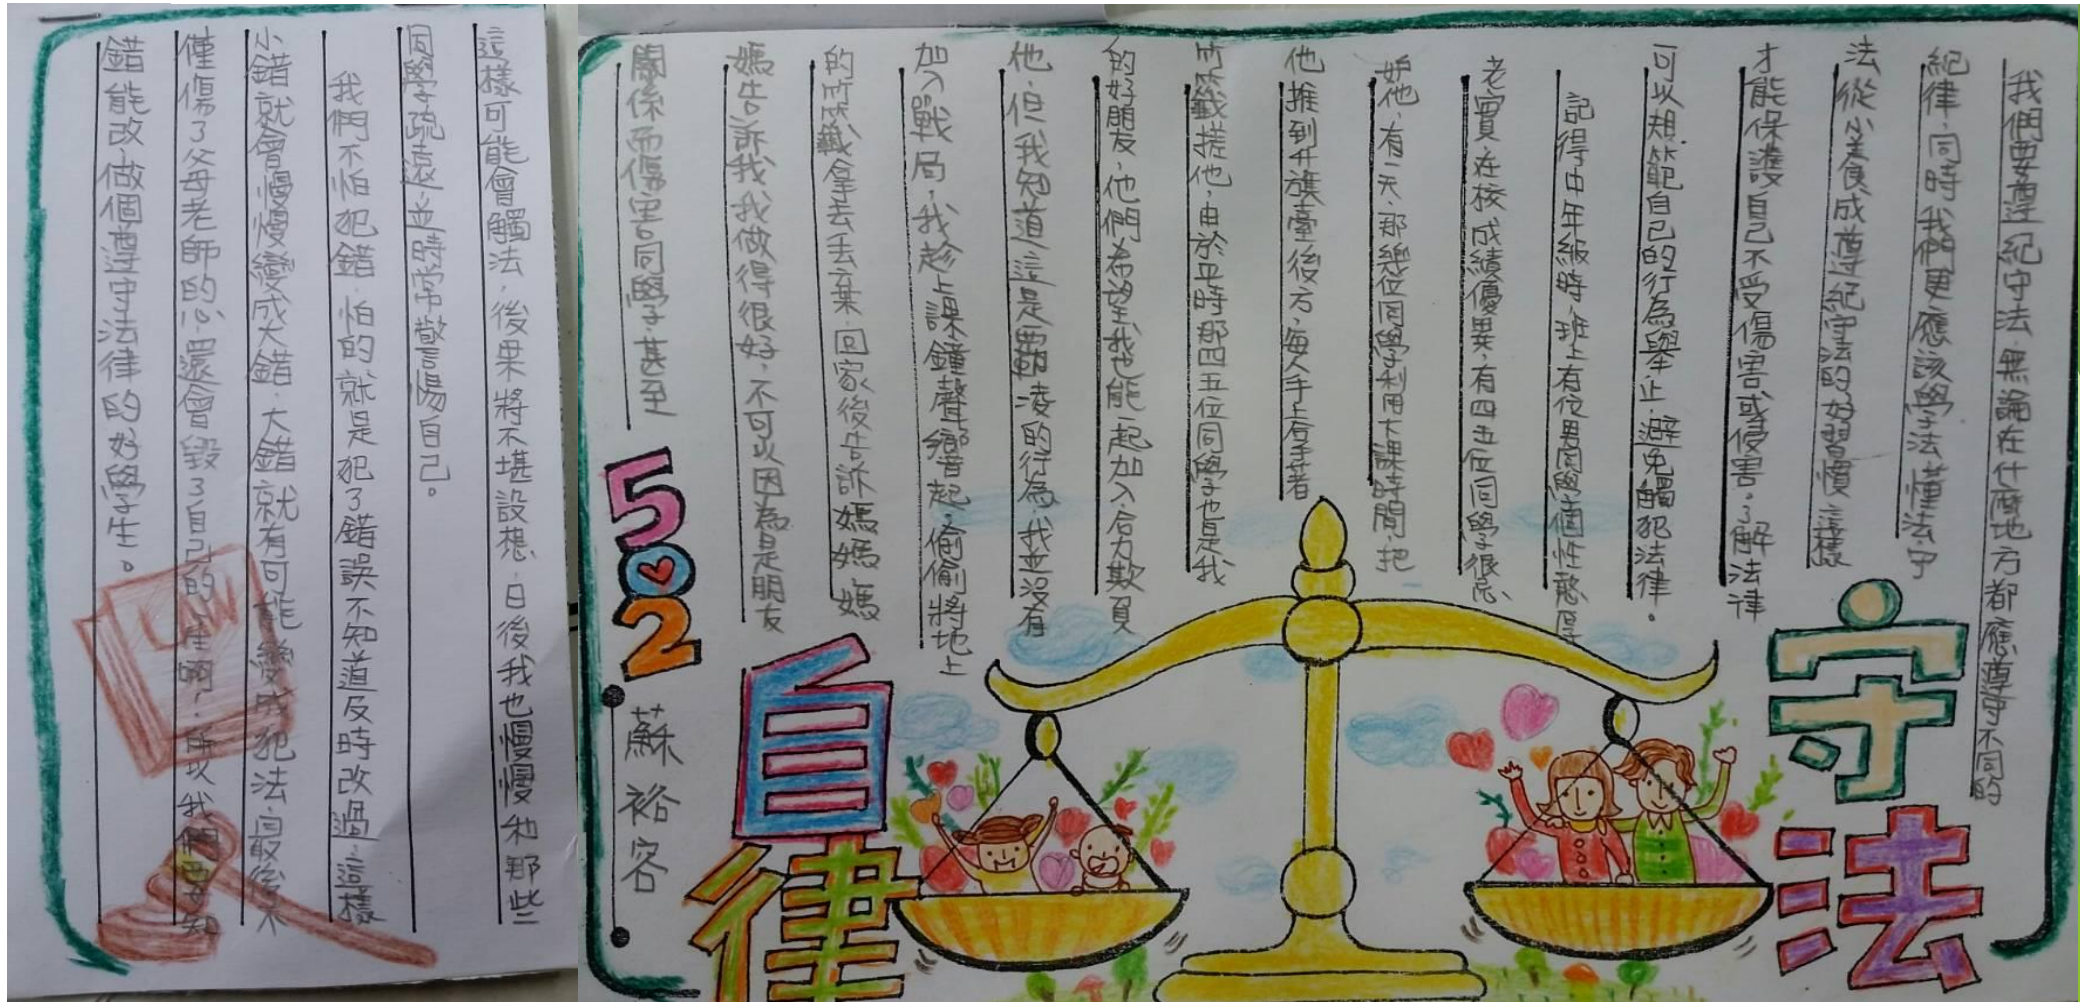 我們要遵紀守法,無論在什麼地方都應遵守不同的
紀律,同時我們更應該學法懂法守
法,從小養成遵紀守法的好習慣,這樣
才能保護自己不受傷害或侵害。了解法律
可以規範自己的行為舉止,避免觸犯法律。
記得中年級時,班上有位男同學個性憨厚
老實,在校成績優異,有四五位同學很忌
妒他,有一天,那幾位同學利用大課時間,把
他推到升旗臺後方,每人手上拿著
竹籤搓他,由於平時那四五位同學也是我
的好朋友,他們希望我也能一起加入合力欺負
他,但我知道這是霸凌的行為,我並沒有
加入戰局,我趁上課鐘聲響起,偷偷將地上
的竹籤拿去丟棄,回家後告訴媽媽,媽
媽告訴我我做得很好,不可以因為是朋友
關係而傷害同學,甚至
這樣可能會觸法,後果將不堪設想,日後我也慢慢和那些
同學疏遠,並時常警惕自己。
我們不怕犯錯,怕的就是犯了錯誤不知道及時改過,這樣
小錯就會慢慢變成大錯,大錯就有可能變成犯法,最後不
僅傷了父母老師的心,還會毀了自己的一生啊!所以我們要知
錯能改,做個遵守法律的好學生。
守法
自律
502
蘇裕容
LAW